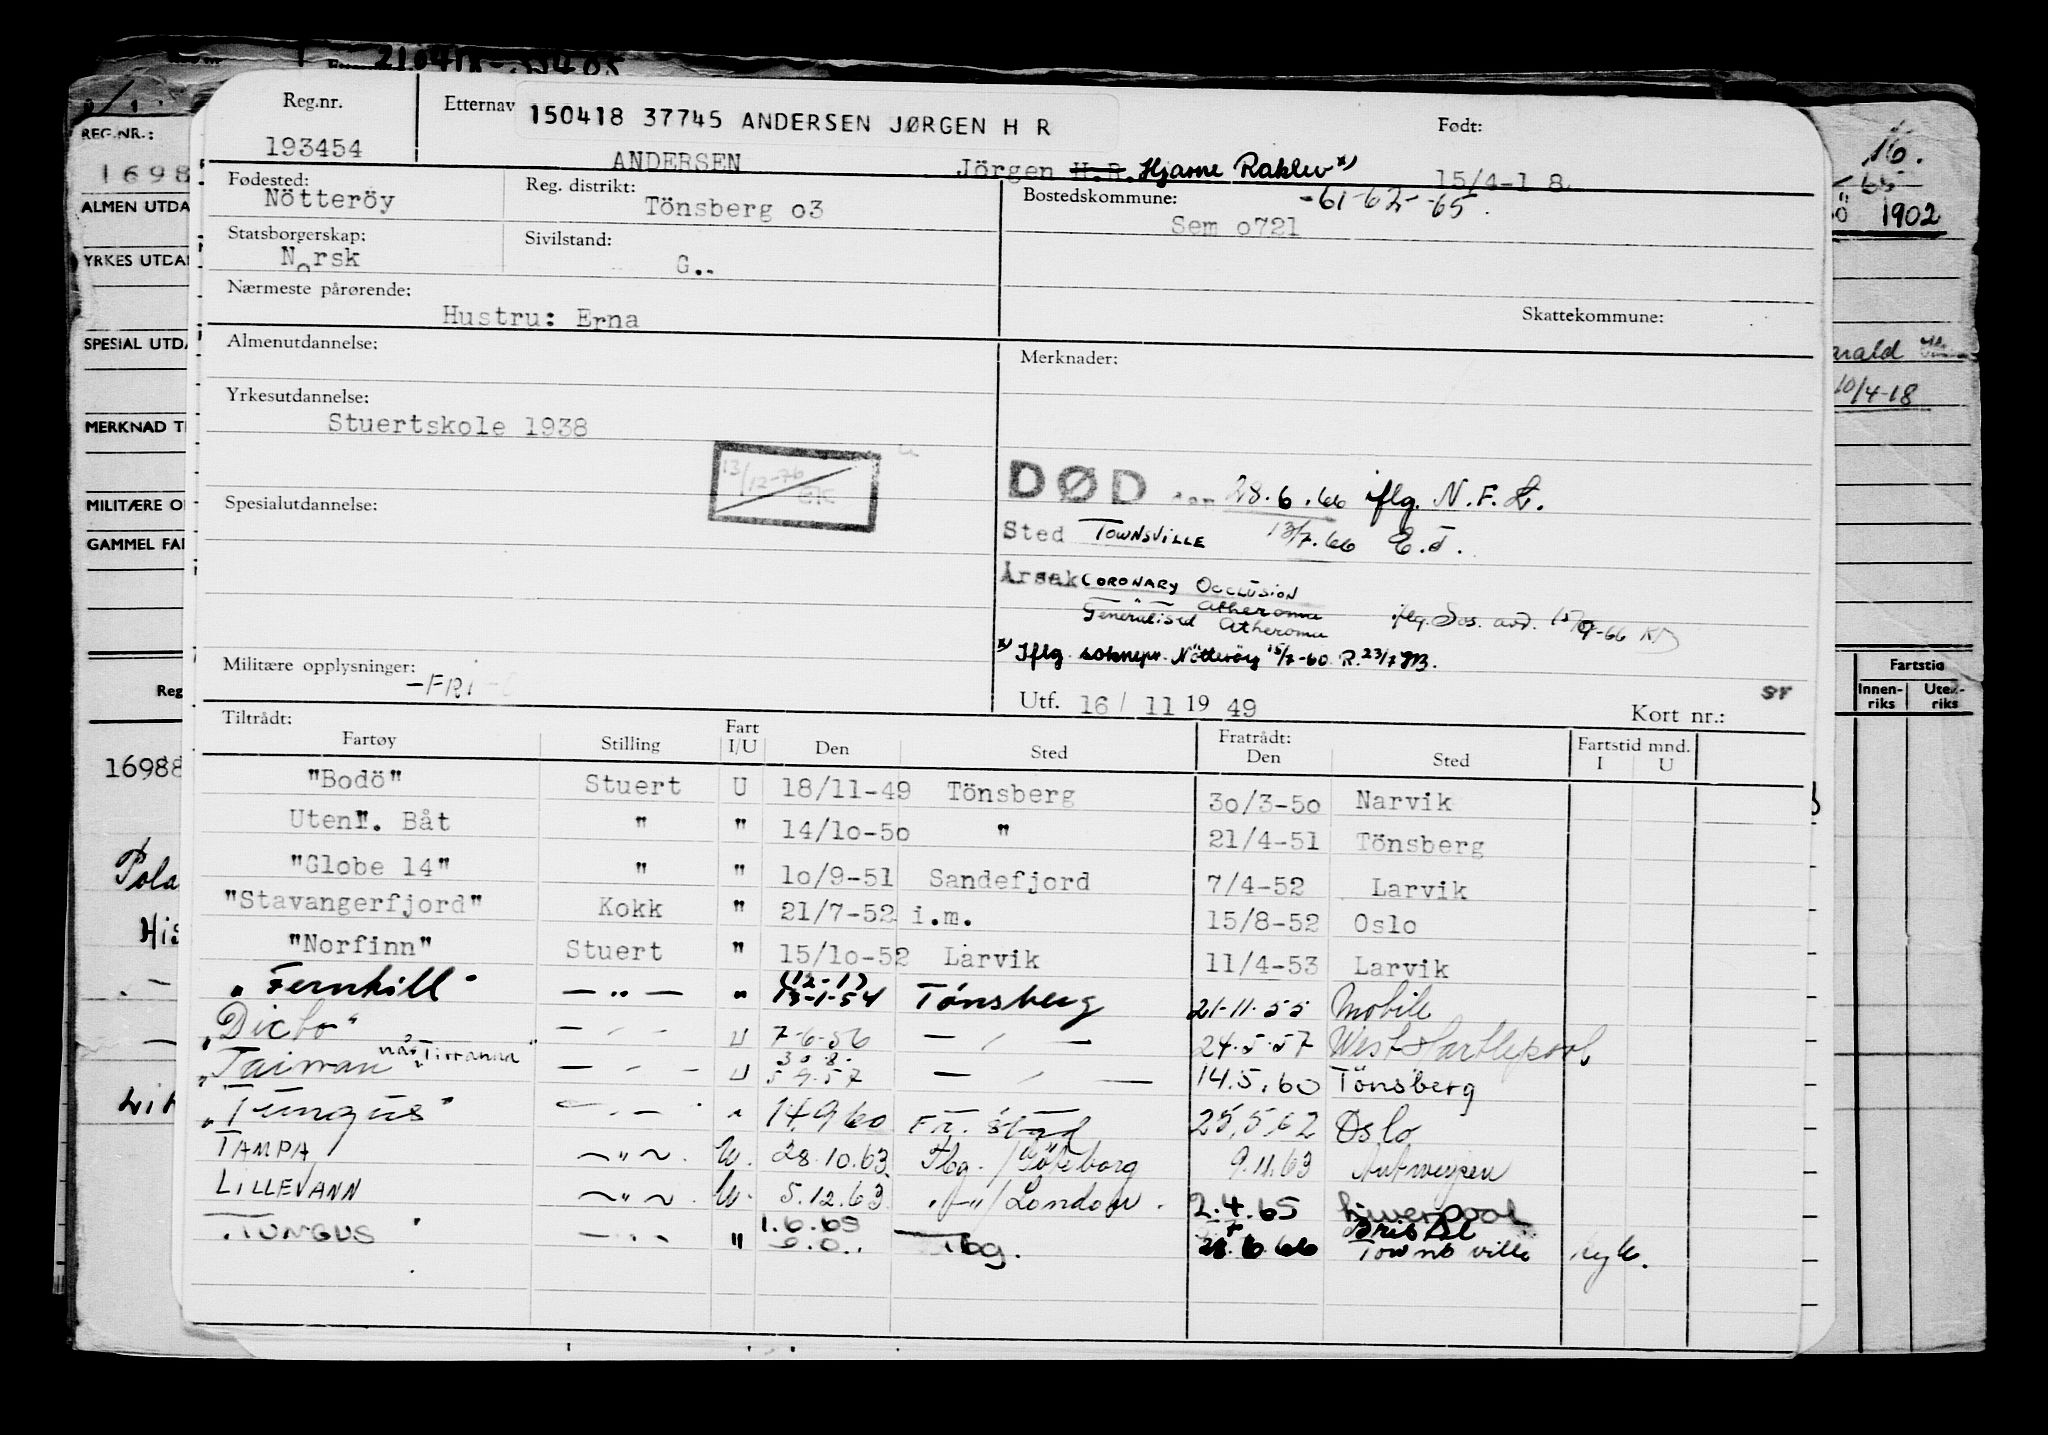 210418
Reg.nr. Etternav 150418 37745 ANDERSEN JØRGEN H R Født:
193454 ANDERSEN Jörgen H.R. Hjarne Raklev x) 15/4-18
Fødested: Reg. distrikt: Bostedskommune: -61-62- -65.
Nötteröy Tönsberg o3 Sem o721
Statsborgerskap: Sivilstand:
Norsk G..
Nærmeste pårørende:
Hustru: Erna Skattekommune:
Almenutdannelse: Merknader:
Yrkesutdannelse:
Stuertskole 1938
13/12-76
Spesialutdannelse:
DØD den 28.6.66 iflg. N.F.L.
Sted TOWNSVILLE 13/7.66 E.J.
Årsak CORONARY OCCLUSION
atheroma
Generalised Atheroma iflg. Sos. avd.
x) Iflg. soknepr. Nötteröy 15/7-60. R. 23/7
Militære opplysninger: -FRI-
Utf. 16/ 11 19 49 Kort nr.:
Tiltrådt: Fratrådt:
Fartøy Stilling Fart I/U Den Sted Den Sted Fartstid mnd. I U
"Bodö" Stuert U 18/11-49 Tönsberg 3o/3-5o Narvik
Utenr. Båt " " 14/1o-5o " 21/4-51 Tönsberg
"Globe 14" " " 1o/9-51 Sandefjord 7/4-52 Larvik
"Stavangerfjord" Kokk " 21/7-52 i.m. 15/8-52 Oslo
"Norfinn" Stuert " 15/1o-52 Larvik 11/4-53 Larvik
"Fernhill" — " — " (12-1) 13-1-54 Tönsberg 21-11-55 Mobile
"Dicto" — " — U 7-6-56 — " — 24.5.57 West Hartlepool
"Taiwan" nå "Tirranna" — " — U 5.9.57 — " — 14.5.60 Tönsberg
"Tungus" — " — " 14.9.60 Fr. stad 25.5.62 Oslo
TAMPA — " — U. 28.10.63 Tbg. / Göteborg 9.11.63 Antwerpen
LILLEVANN — " — U. 5.12.63 — " — / London. 2.4.65 Liverpool
"TUNGUS" — " — " 1.6.65 Tbg. Bristol
28.6.66 Townsville syk.
REG.NR.:
1698
ALMEN UTDA
YRKES UTDA
SPESIAL UTDA
MERKNAD T
MILITÆRE O
GAMMEL FA
Reg
16988
Pola
His
16.
65
1902
arald
10/4-18
Fartstid
Innen-riks Uten-riks